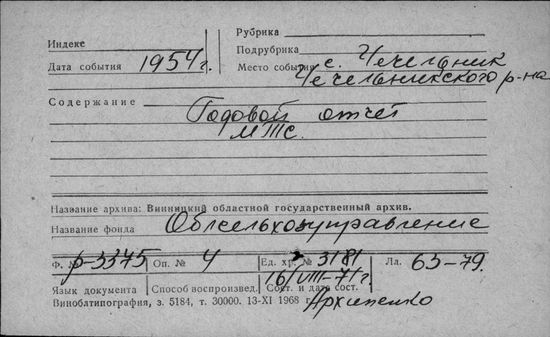 Рубрика
Индекс
Подрубрика
Дата события 1954 г.
Место события с. Чечельник
Чечельникского р-на
Содержание Годовой отчет
МТС.
Название архива: Винницкий областной государственный архив.
Название фонда Облсельхозуправление
Ф. № р-3375 Оп. № 4 Ед. хр. № 3181 Лл. 63-79.
16/VIII-71 г.
Язык документа Способ воспроизвед. Сост. и дата сост.
Архипенко
Виноблтипография, з. 5184, т. 30000. 13-XI 1968 г.